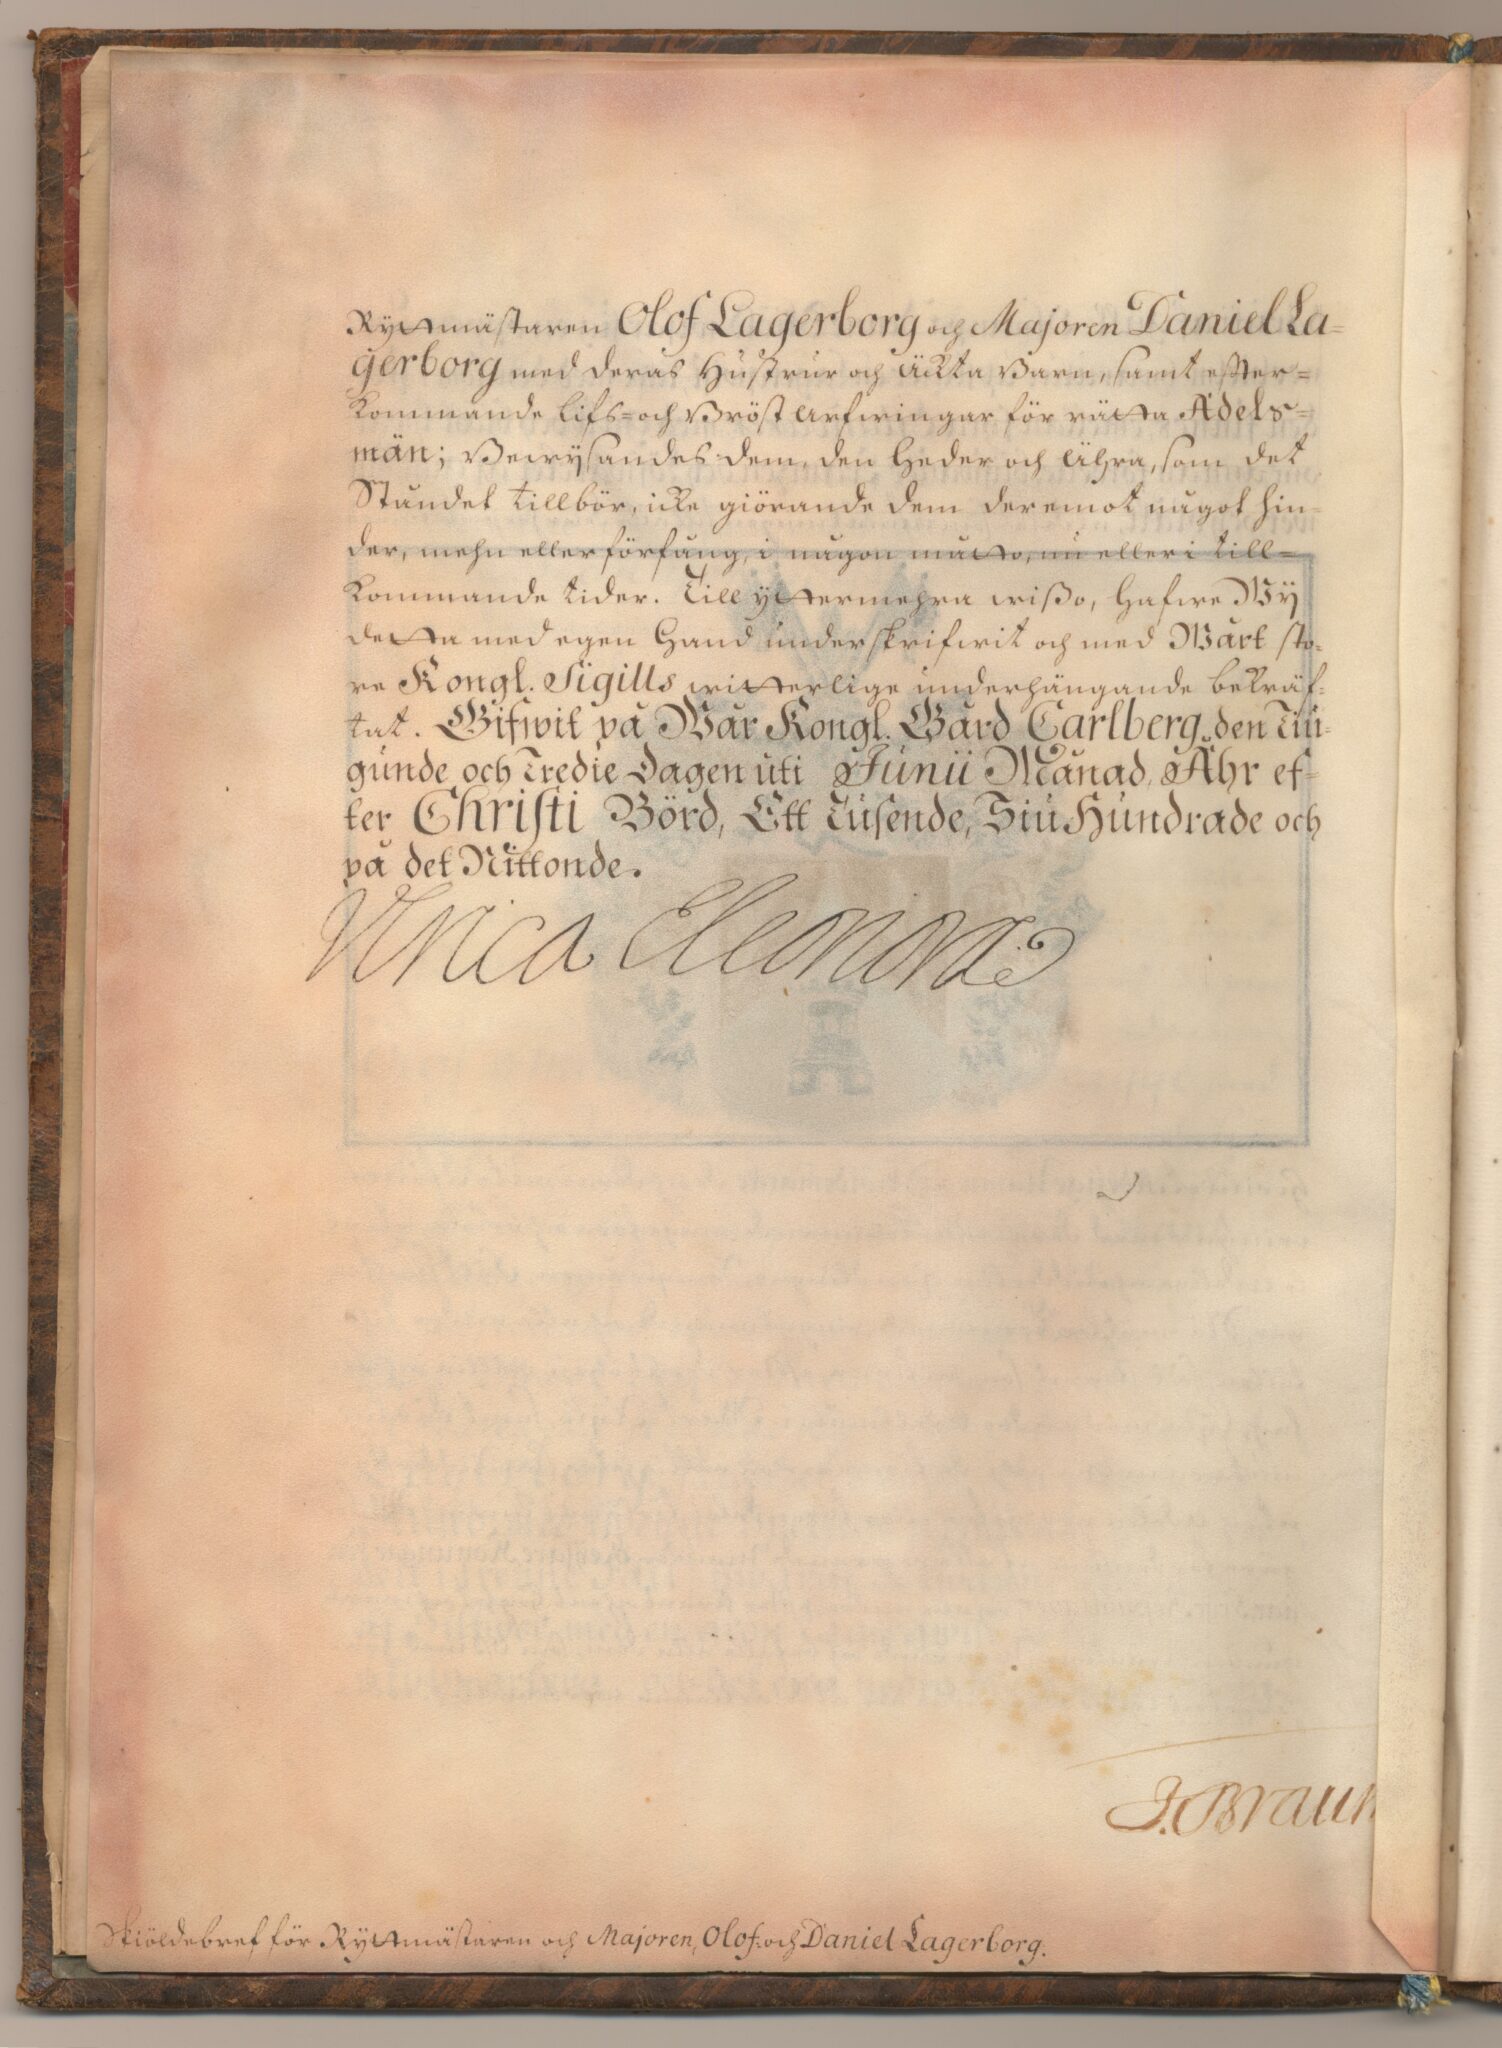 Ryttmästaren Olof Lagerborg och Majoren Daniel La=
gerborg med deras Hustrur och Äckta Barn, samt effter=
kommande Lifs= och Bröst Arfwingar för rätta Adels=
män; Bewysandes dem, den Heder och Ähra, som det
Ståndet tillbör, icke giörande dem deremot något hin
der, mehn eller förfång, i någon måtto, nu eller i till=
kommande tider. Till yttermehra wißo, Hafwe Wy
detta med egen Hand underskrifwit och med Wårt sto-
re Kongl. Sigills witterlige underhängande bekräf-
tat. Gifwit på Wår Kongl. Gård Carlberg, den Tiu-
gunde och Tredie Dagen uti Junii Månad, Åhr ef=
ter Christi Börd, Ett Tusende, Siu Hundrade och
på det Nittonde.
Ulrica Eleonora
J. Braun
Skiöldebref för Ryttmästaren och Majoren, Olof: och Daniel Lagerborg.